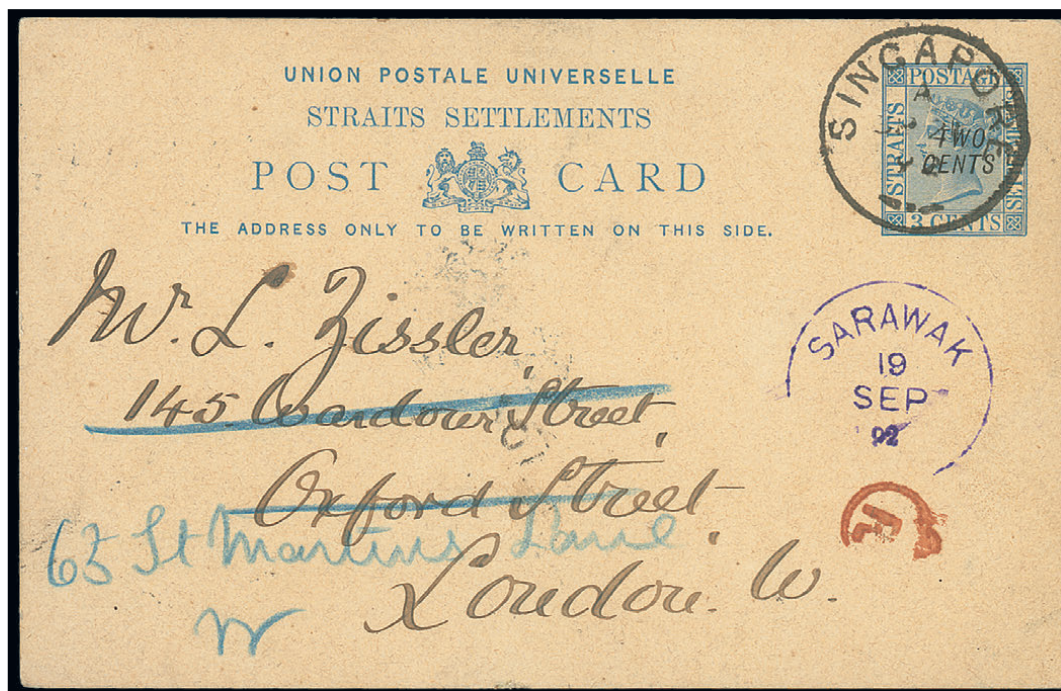 UNION POSTALE UNIVERSELLE
STRAITS SETTLEMENTS
POST CARD
THE ADDRESS ONLY TO BE WRITTEN ON THIS SIDE.
POSTAGE
STRAITS
SETTLEMENTS
3 CENTS
TWO
CENTS
SINGAPORE
A
SARAWAK
19
SEP
92
Mr. L. Zissler,
145. Wardour Street,
Oxford Street.
63 St Martins Lane
London. W.
W